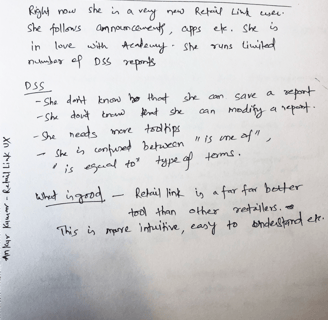 Right now she is a very new Retail Link user.
She follows announcements, apps etc. She is
in love with Academy. She runs limited
number of DSS reports
DSS
- She don't know that she can save a report
- She don't know that she can modify a report.
- She needs more tooltips
- She is confused between "is one of",
"is equal to" type of terms.
What is good - Retail link is a far far better
tool than other retailers.
This is more intuitive, easy to understand etc.
Ankur Kumar - Retail Link UX